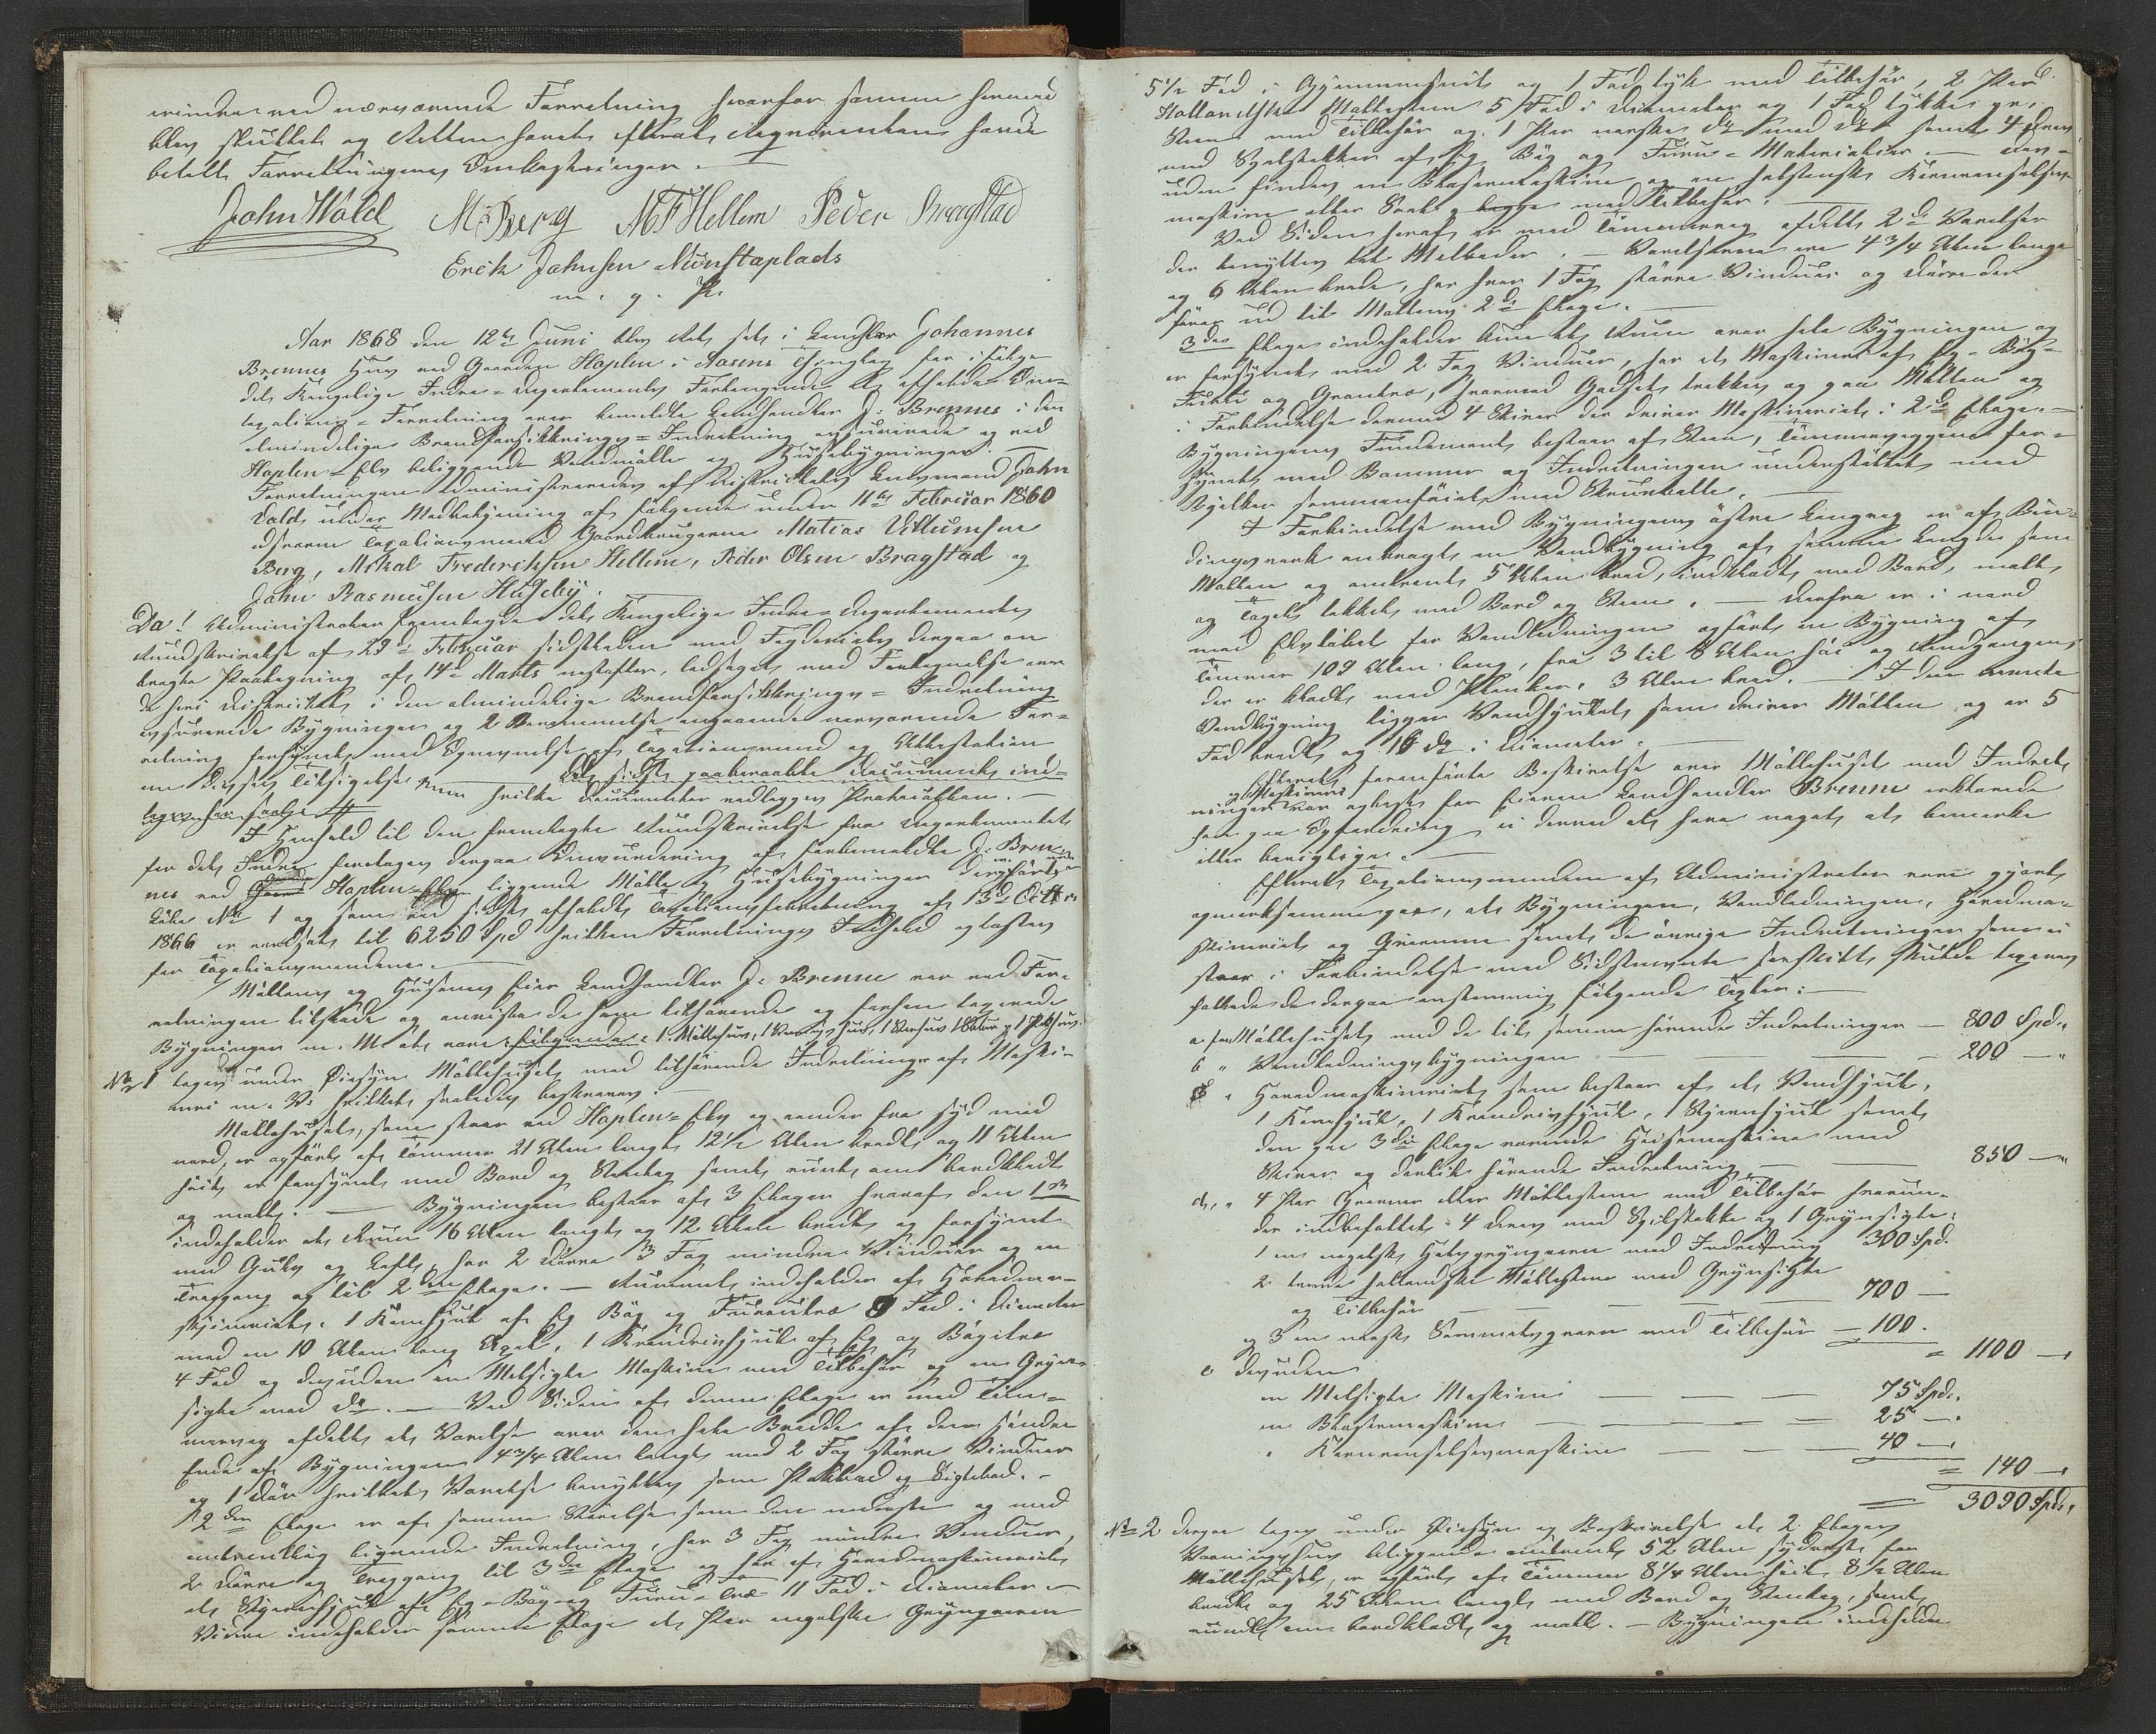 erindre ved nærværende Forretning hvorfor samme hermed
blev sluttet og Retten hævet efterat Reqvirenten havde
betalt Forretningens Omkostninger. —
John Wold M. Berg M F Hellem Peder Bragstad
Erik Johnsen Munstaplads
m. p. P.
Aar 1868 den 12te Juni blev Ret sat i Landhdlr Johannes
Brennes Huus ved Gaarden Hoplen i Aasens Thinglag for ifølge
det Kongelige Indre-Departements Forlangende at afholde Om-
taxations-Forretning over bemeldte Landhandler J. Brennes i den
almindelige Brandforsikkrings-Indretning assurerede og ved
Hoplen-Elv beliggende Vandmølle og Huusebygninger. —
Forretningen administreredes af Distriktets Lensmand John
Vold, under Medbetjening af følgende under 11te Februar 1860
udnævnte Taxationsmænd Gaardbrugerne Matias Villumsen
Berg, Mikal Frederiksen Hellem, Peder Olsen Bragstad og
John Rasmussen Husby.
Da! Administrator fremlagde det Kongelige Indre-Departements
Rundskrivelse af 29de Februar sidstleden med Fogderiets derpaa an-
bragte Paategning af 14de Marts næstefter, ledsaget med Fortegnelse over
de heri Distriktet i den almindelige Brandforsikkrings-Indretning
assurerede Bygninger og 2 Berammelse angaaende nærværende For-
retning forsynet med Opnævnelse af Taxationsmænd og Attestation
om disses Tilsigelse — hvilke Documenter vedlægges Protocollen. —
I Henhold til den fremlagte Rundskrivelse fra Departementet
for det Indre foretages derpaa Omvurdering af forbemeldte J. Bren-
nes ved Hoplen-Elv liggende Mølle og Huusebygninger
Løbe No 1 og som ved sidst afholdte Taxationsforretning af 13de Octbr
1866 er ansat til 6250 Spd hvilken Forretnings Indhold oplæstes
for Taxationsmændene. —
Møllens og Husenes Eier Landhandler J. Brenne var ved For-
retningen tilstede og anviste de ham tilhørende og forhen taxerede
Bygninger m. M. at være: følgende: 1 Møllehuus, 1 Vaaningshuus,
No 1 tages under Øiesyn Møllehuset med tilhørende Indretninger af Maski-
neri m. V. hvilket saaledes beskreves:
Møllehuset, som staar ved Hoplen-Elv og vender fra syd mod
nord, er opført af Tømmer 21 Alen langt 12½ Alen bredt og 11 Alen
høit, er forsynet med Bord og Steentag samt rundt om bordklædt
og malet. — Bygningen bestaar af 3 Etager hvoraf den 1ste
indeholder et Rum 16 Alen langt og 12 Alen bredt og forsynet
med Gulv og Loft, har 2 Dørre 3 Fag mindre Vinduer og en
Trægang op til 2den Etage. — Rummet indeholder af Hoved-
maskineriet, 1 Kamhjul af Eg Bøg og Furutræ 9 Fod i Diameter
med en 10 Alen lang Axel, 1 Krondrivhjul af Eg og Bøgetræ
4 Fod og desuden en Melsigte Maskine med Tilbehør og en Gryn-
sigte med Do. — Ved Siden af denne Etage er med Tøm-
mervæg afdelt et Værelse over den hele Bredde af den søndre
Ende af Bygningen 4¾ Alen langt med 2 Fag større Vinduer
og 1 Dør hvilket Værelse benyttes som Pakbod og Sigtebod. —
2den Etage er af samme Størrelse som den nederste og med
omtrentlig lignende Indretning, har 3 Fag mindre Vinduer,
2 Dørre og Trægang til 3die Etage og har af Hovedmaskineriet
et Stjernehjul af Eg-Bøg- og Furu-Træ 11 Fod i Diameter. —
Videre indeholder samme Etage et Par engelske Grynqværne
6.
5½ Fod i Gjennemsnit og 1 Fod tyk med Tilbehør, 2 Par
Hollandske Møllesteene 5 Fod i Diameter og 1 Fod tykke pr.
Steen med Tilbehør og 1 Par norske Do med Do samt 4 Drev
med Spilstokker af Eg Bøg og Furu-Materialier. — Des-
uden findes en Blæsemaskine og en holstensk Kornrenselses-
maskine eller Sold begge med Tilbehør.
Ved Siden heraf er med Tømmervæg afdelt 2de Værelser
der benyttes til Melboder. — Værelserne ere 4¾ Alen lange
og 6 Alen brede, har hver 1 Fag større Vinduer og Dørre der
fører ud til Møllens 2de Etage.
3die Etage indeholder kun et Rum over hele Bygningen og
er forsynet med 2 Fag Vinduer, har et Maskineri af Eg-Bøg-
Furu og Grantræ, hvormed Godset trækkes op paa Møllen og
i Forbindelse dermed 4 Skiver der driver Maskineriet i 2de Etage. —
Bygningens Fundament bestaar af Steen, Tømmervæggene for-
synet med Bommer og Indretningen understøttet med
Bjelker sammenføiet med Skruebolte.
I Forbindelse med Bygningens østre Langvæg er af Bin-
dingsværk anbragt en Vandbygning af samme Længde som
Møllen og omtrent 5 Alen bred, indklædt med Bord, malt,
og Taget tækket med Bord og Steen. — Derfra er i nord
mod Elvløbet for Vandledningen opført en Bygning af
Tømmer 109 Alen lang, fra 3 til 8 Alen høi og Rendegangen,
der er klædt med Planker, 3 Alen bred. — I den nævnte
Vandbygning ligger Vandhjulet som driver Møllen og er 5
Fod bredt og 16 Do i Diameter.
Efterat foranførte Beskrivelse over Møllehuset med Indret-
ninger og Maskineri var oplæst for Eieren Landhandler Brenne erklærede
han paa Opfordring ei derved at have noget at bemærke
eller berigtige. —
Efterat Taxationsmændene af Administrator vare gjorte
opmærksomme paa, at Bygningen, Vandledningen, Hovedma-
skineriet og Qværnene samt de øvrige Indretninger som
staar i Forbindelse med Sidstnævnte særskilt skulde taxeres
fattede de derpaa enstemmig følgende Taxter: —
a. for Møllehuset med de til samme hørende Indretninger — 800 Spd.
b " Vandledningsbygningen — — — 200 — "
c " Hovedmaskineriet som bestaar af et Vandhjul,
1 Kamhjul, 1 Krondrivhjul, 1 Stjernehjul samt
den paa 3die Etage værende Heisemaskine med
Skiver og dertil hørende Indretning — — 850 — "
d, " 4 Par Qværner eller Møllesteene med Tilbehør hvorun-
der indbefattet 4 Drev med Spilstokke og 1 Grynsigte:
1 en engelsk Havregrynqværn med Indretning 300 Spd.
2 tvende hollandske Møllestene med Grynsigte
og Tilbehør — — — — 700 —
og 3 en norsk Sammalsqværn med Tilbehør — 100.
= 1100 —
e desuden
en Melsigte Maskine — — — 75 Spd.
en Blæsemaskine — — — — 25 — .
" Kornrenselsesmaskine — — 40 —
= 140 —
= 3090 Spd.
No 2 Derpaa tages under Øiesyn og Beskrivelse et 2 Etages
Vaaningshuus beliggende omtrent 52 Alen sydvest for
Møllehuset, er opført af Tømmer 8¼ Alen høit, 8½ Alen
bredt og 25 Alen langt med Bord og Steentag, samt
rundt om bordklædt og malt. — Bygningen indeholder